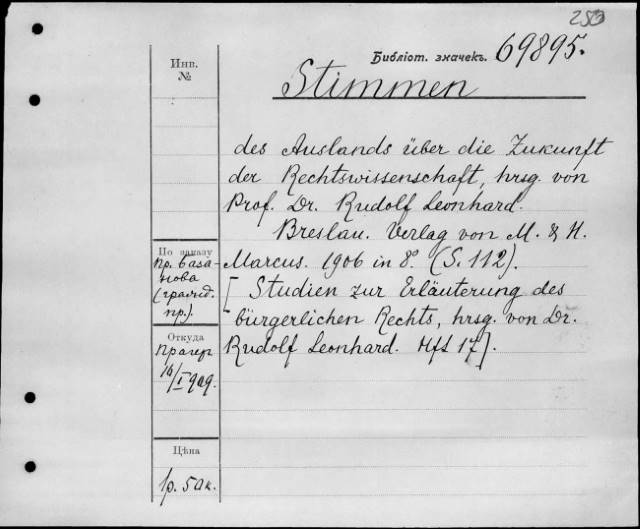 253
Библіот. значекъ. 69895.
Инв.
№
Stimmen
des Auslands über die Zukunft
der Rechtswissenschaft, hrsg. von
Prof. Dr. Rudolf Leonhard.
Breslau. Verlag von M. & H.
Marcus. 1906 in 8º. (S. 112).
[Studien zur Erläuterung des
bürgerlichen Rechts, hrsg. von Dr.
Rudolf Leonhard. Hft 17].
По заказу
пр. База-
нова
(гражд.
пр.).
Откуда
Прагер
16/I 909.
Цѣна
1р. 50к.